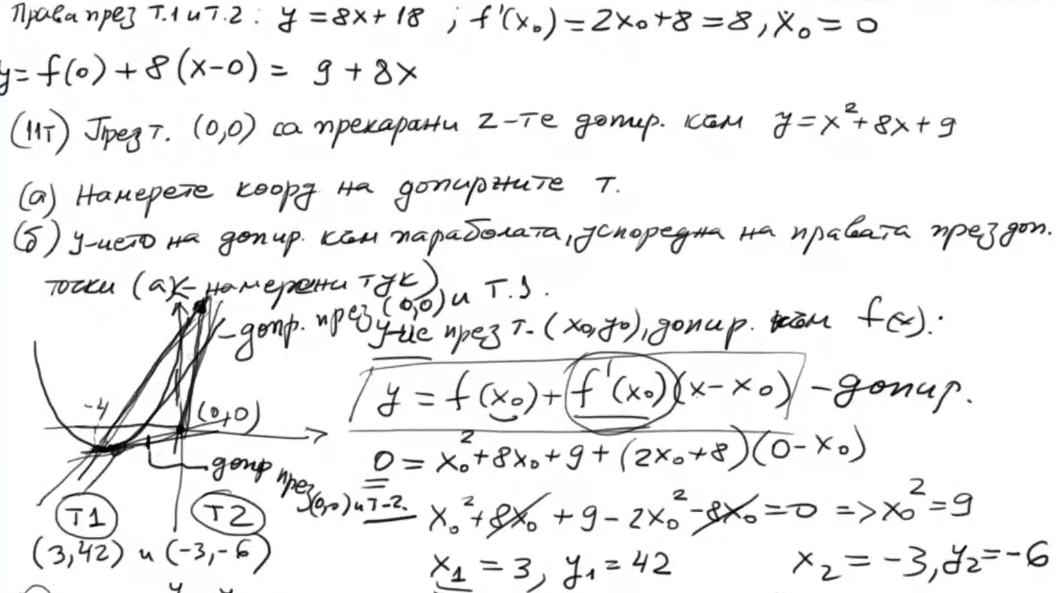 Права през т.1 и т.2: y = 8x + 18 ; f'(x₀) = 2x₀ + 8 = 8, x₀ = 0
y = f(0) + 8(x-0) = 9 + 8x
(11т) През т. (0,0) са прекарани 2-те допир. към y = x² + 8x + 9
(а) Намерете коорд на допирните т.
(б) у-ието на допир. към параболата, успоредна на правата през доп.
точки (а) - намерени тук)
допр. през (0,0) и т.1.
у-ие през т. (x₀, y₀), допир. към f(x):
y = f(x₀) + f'(x₀)(x - x₀) - допир.
-4
(0,0)
0 = x₀² + 8x₀ + 9 + (2x₀ + 8)(0 - x₀)
допр през (0,0) и т-2.
x₀² + 8x₀ + 9 - 2x₀² - 8x₀ = 0 => x₀² = 9
T1 T2
(3,42) и (-3,-6)
x₁ = 3, y₁ = 42 x₂ = -3, y₂ = -6